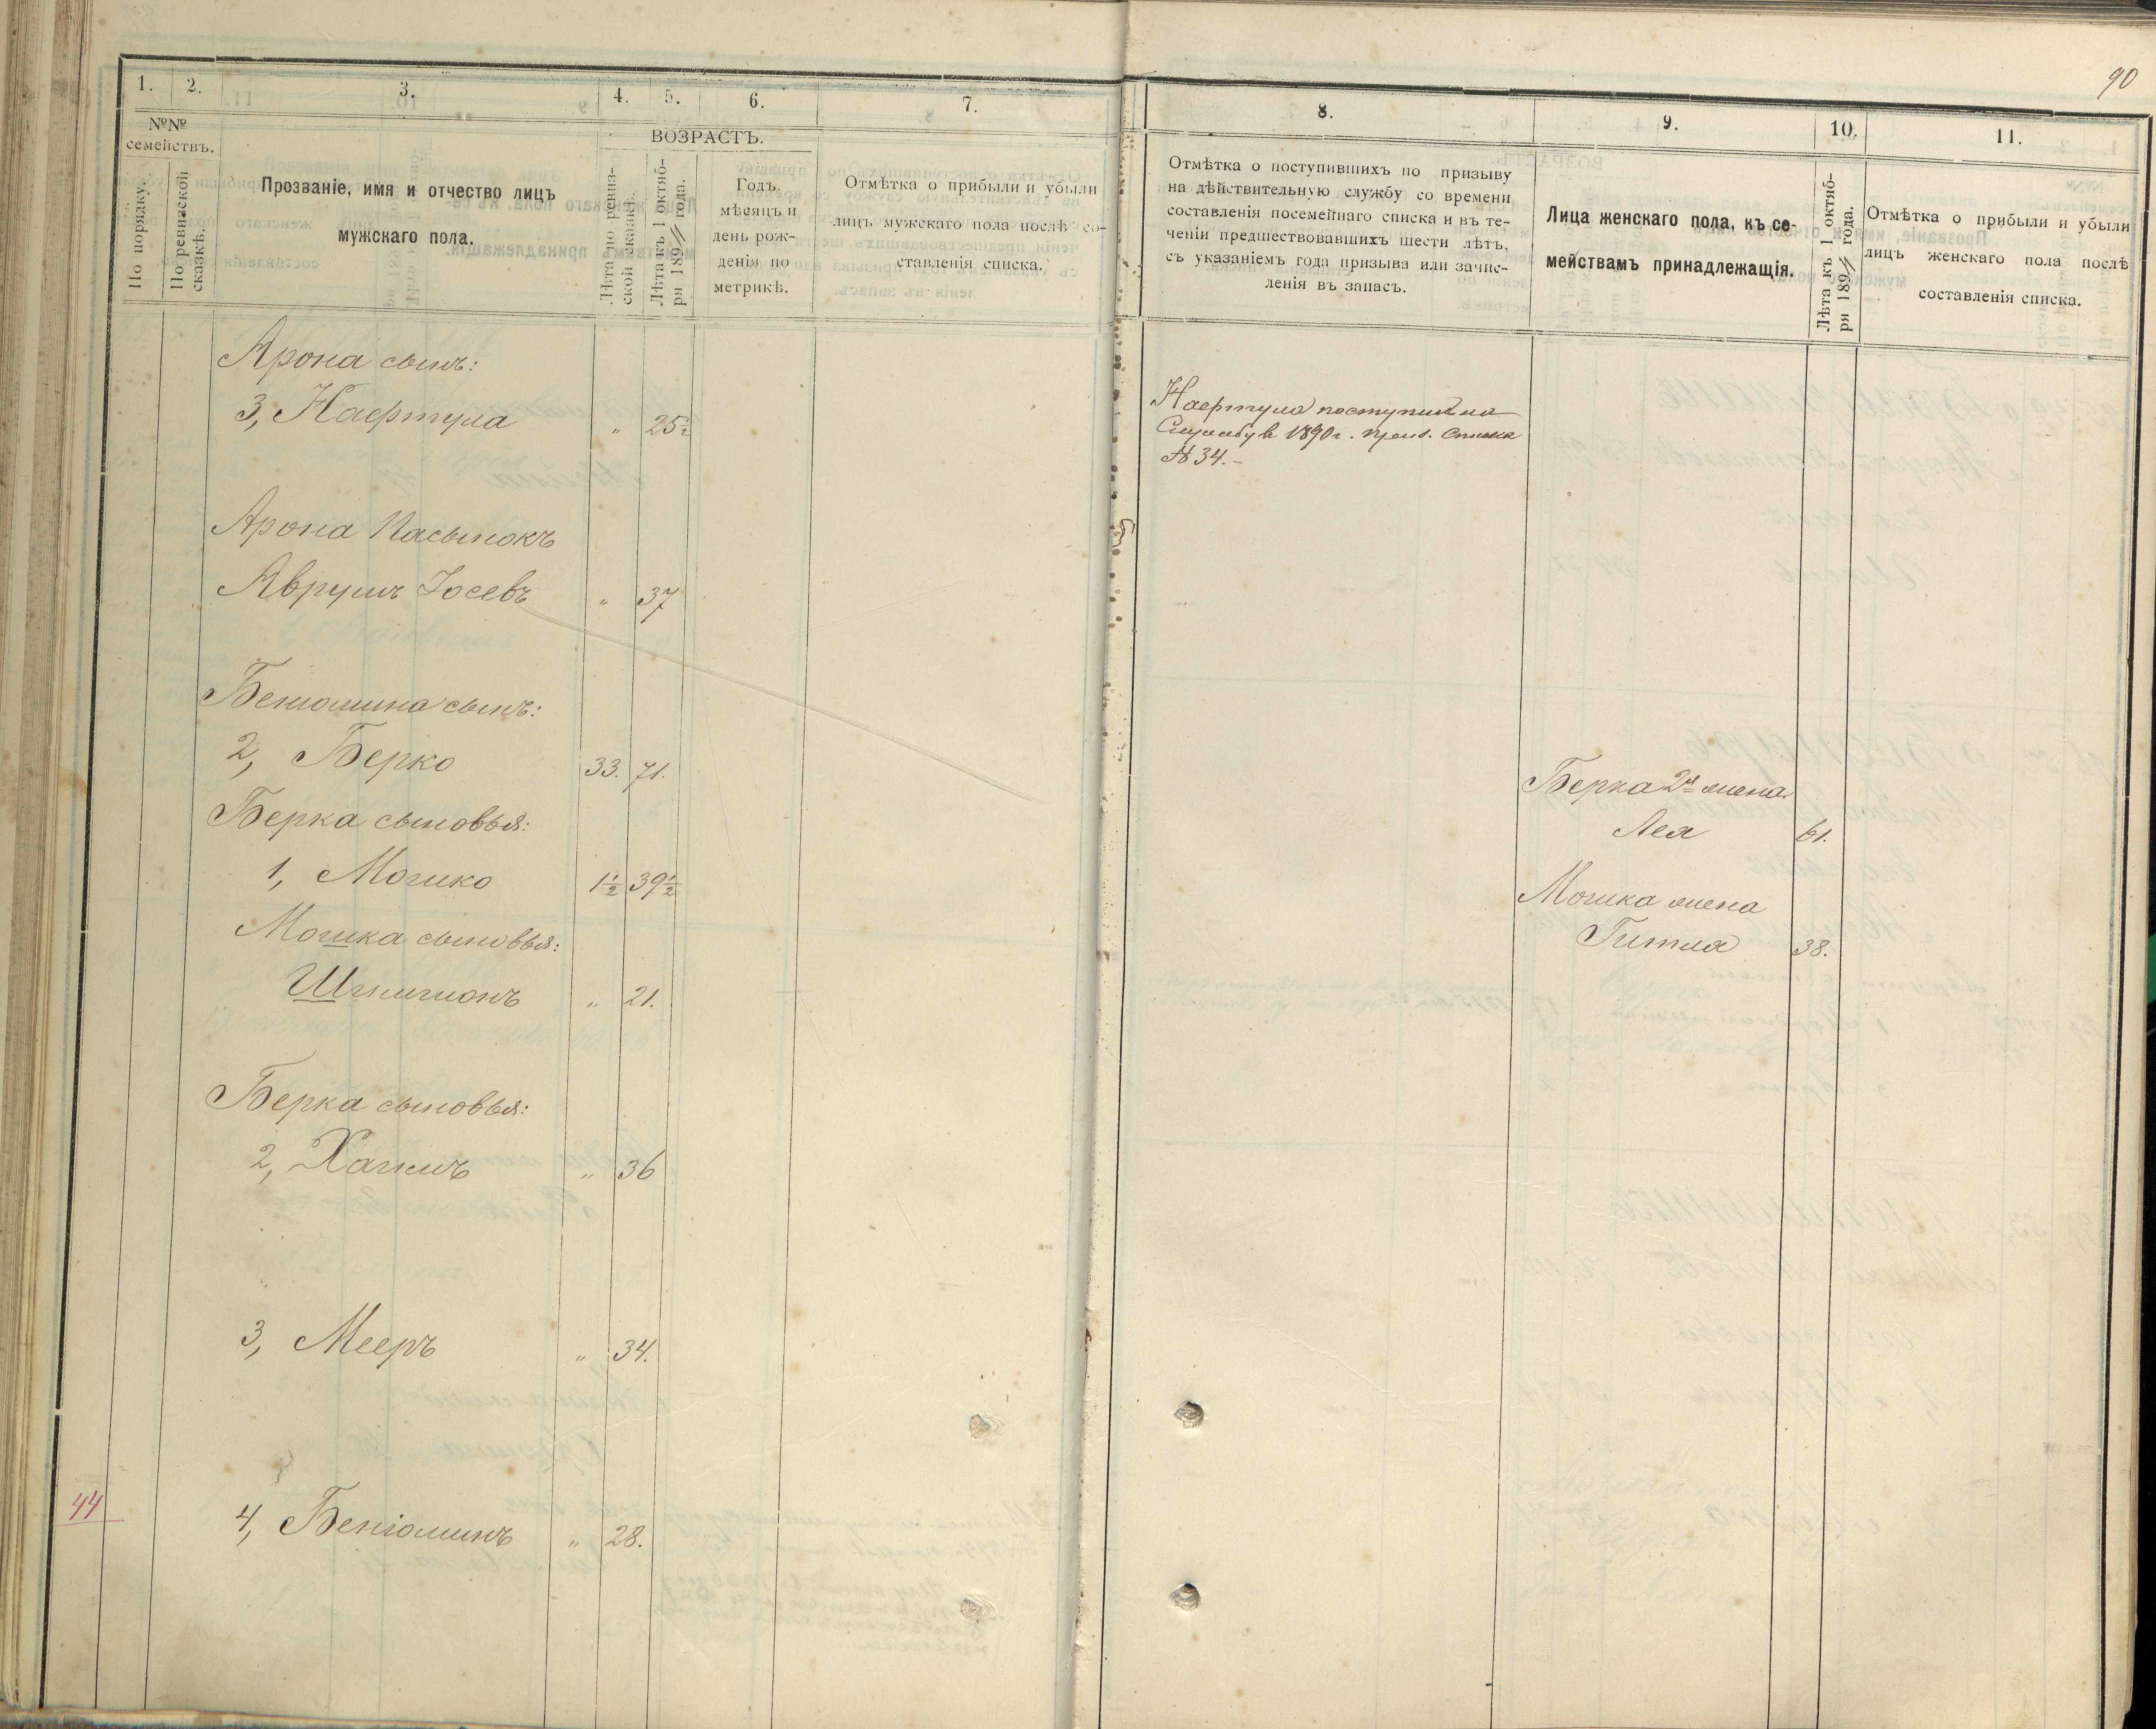 90
1. 2. 3. 4. 5. 6. 7.
№№ семействъ.
По порядку.
По ревизской сказкѣ.
Прозваніе, имя и отчество лицъ
мужскаго пола.
ВОЗРАСТЪ.
Лѣта по ревиз-
ской сказкѣ.
Лѣта къ 1 октяб-
ря 189 года.
Годъ,
мѣсяцъ и
день рож-
денія по
метрикѣ.
Отмѣтка о прибыли и убыли
лицъ мужскаго пола послѣ со-
ставленія списка.
8. 9. 10. 11.
Отмѣтка о поступившихъ по призыву
на дѣйствительную службу со времени
составленія посемейнаго списка и въ те-
ченіи предшествовавшихъ шести лѣтъ,
съ указаніемъ года призыва или зачис-
ленія въ запасъ.
Лица женскаго пола, къ се-
мействамъ принадлежащія.
Лѣта къ 1 октяб-
ря 189 года.
Отмѣтка о прибыли и убыли
лицъ женскаго пола послѣ
составленія списка.
Арона сынъ:
3, Нафтула " 25½
Арона Пасынокъ
Аврумъ Іосевъ " 37
Бенюмина сынъ:
2, Берко 33. 71.
Берка сыновья:
1, Мошко 1½ 39½
Мошка сыновья:
Шлиомъ " 21.
Берка сыновья:
2, Хаимъ " 36
3, Мееръ " 34.
44
4, Беніоминъ " 28.
Нафтула поступилъ на
Службу в 1890 г. приз. Списка
№ 34.-
Берка 2я жена
Лея 61.
Мошка жена
Гитла 38.